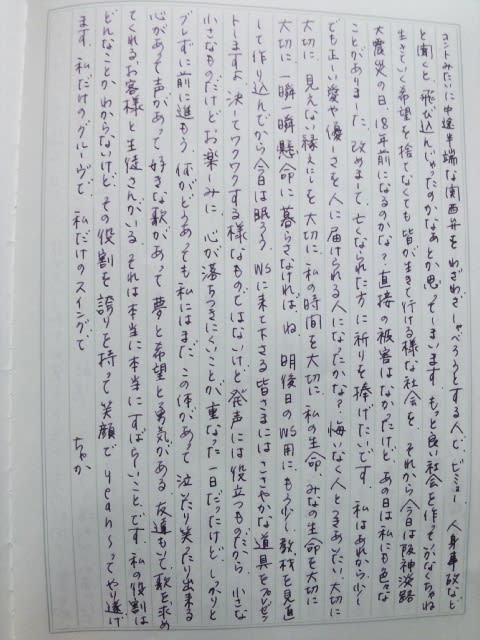 コントみたいに中途半端な関西弁をわざわざしゃべろうとする人で、ビミョー。人身事故など
と聞くと、飛び込んじゃったのかなあとか思ってしまいます。もっと良い社会を作っていかなくちゃね
生きていく希望を捨てなくても皆が生きて行ける様な社会を。それから今日は阪神淡路
大震災の日。18年前になるのかな?直接の被害はなかったけど、あの日は私にも色々な
ことがありました。改めまして、亡くなられた方に祈りを捧げたいです。私はあれから少し
でも正しい愛や優しさを人に届けられる人になれたかな?悔いなく人とつきあいたい。大切に
大切に、見えない縁えにしを大切に、私の時間を大切に、私の生命、みなの生命を大切に
大切に一瞬一瞬懸命に暮らさなければ、ね。明後日のWS用にもう少し教材を見直
して作り込んでから今日は眠ろう。WSに来て下さる皆さまにはささやかな道具をプレゼン
トしますよ。決してワクワクする様なものではないけど発声には役立つものだから。小さな
小さなものだけどお楽しみに。心が落ちつきにくいことが重なった一日だったけど、しっかりと
ブレずに前に進もう。何がどうあっても私にはまだ、この体があって泣いたり笑ったり出来る
心があって声があって好きな歌があって夢と希望と勇気がある。友達もいて歌を求め
てくれるお客様と生徒さんがいる。それは本当に本当にすばらしいことです。私の役割は
どんなことかわからないけど、その役割を誇りを持って笑顔でyeah〜ってやり遂げ
ます。私だけのグルーヴで、私だけのスイングで
ちゃか